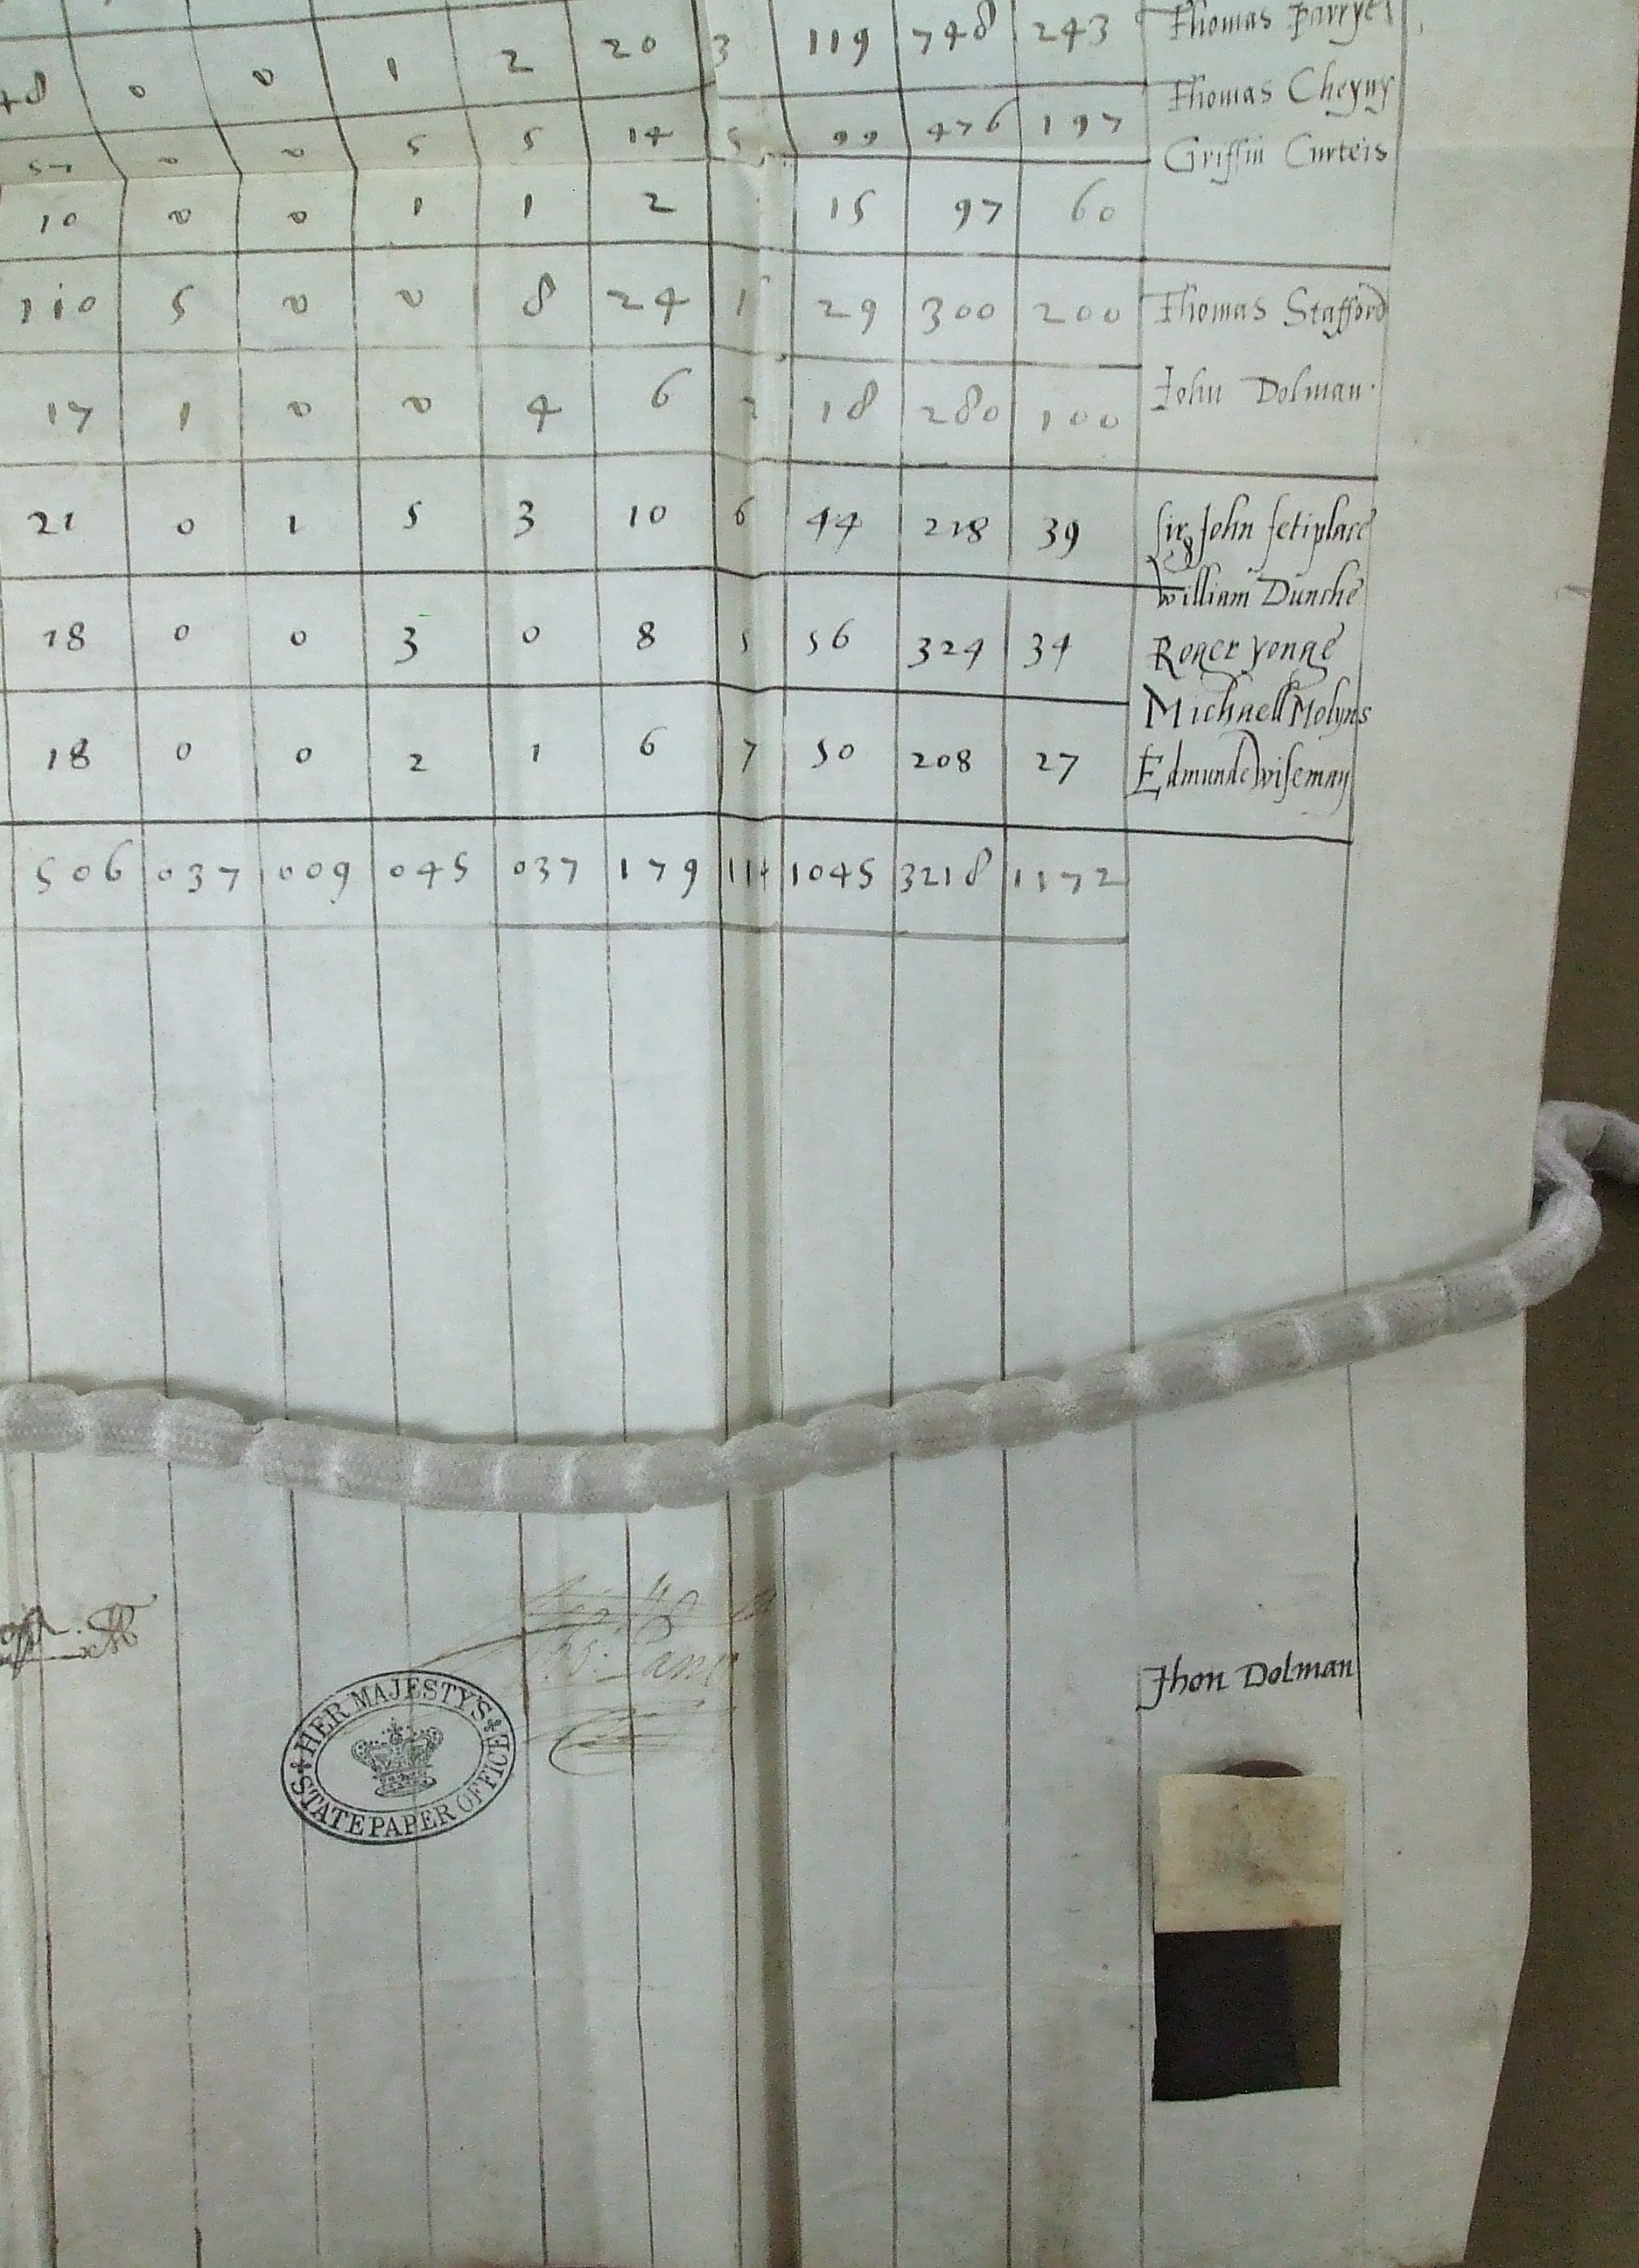 20 3 119 748 243 Thomas Parrye
0 0 1 2
Thomas Cheyny
57 0 0 5 5 14 5 99 476 197
Griffin Curteis
10 0 0 1 1 2 15 97 60
110 5 0 0 8 24 1 29 300 200 Thomas Stafford
17 1 0 0 4 6 2 18 280 100 John Dolman
21 0 1 5 3 10 6 44 218 39 Sir John fetiplace
William Dunche
18 0 0 3 0 8 5 56 324 34 Roger yonge
Michaell Molyns
18 0 0 2 1 6 7 50 208 27 Edmunde Wiseman
506 037 009 045 037 179 114 1045 3218 1172
Jhon Dolman
HER MAJESTY'S
STATE PAPER OFFICE